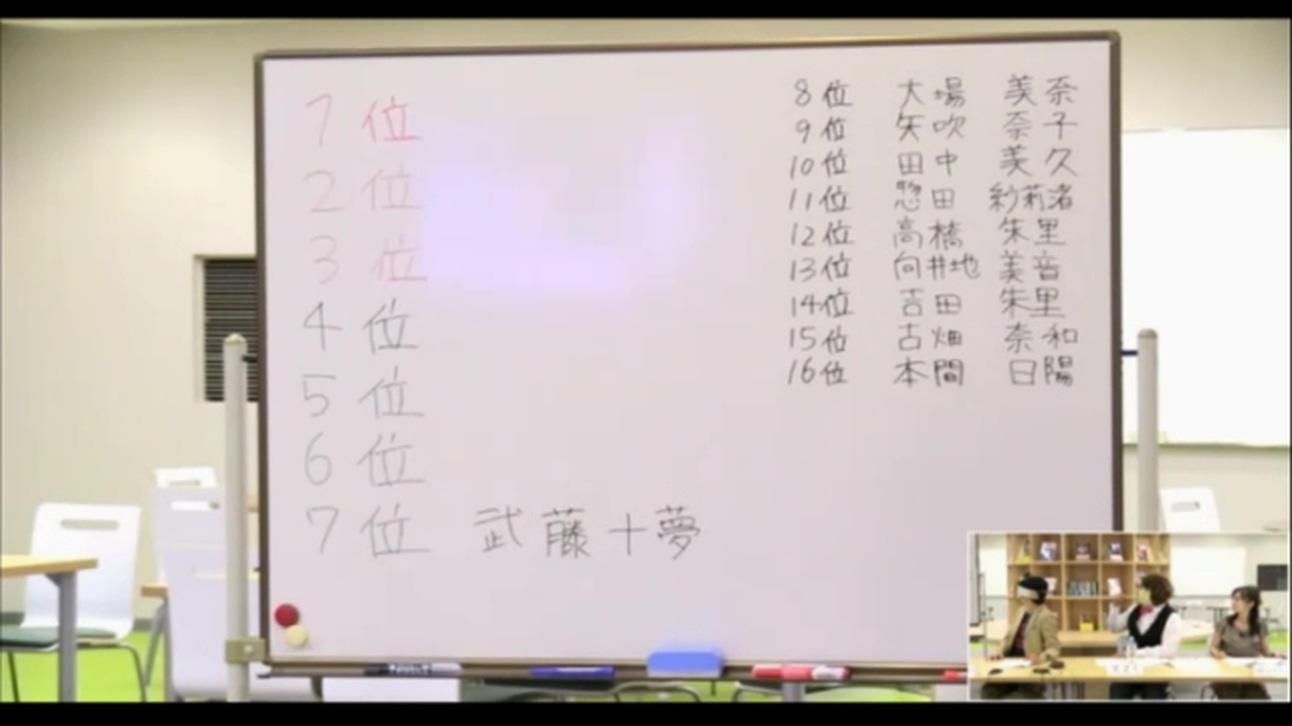 1位
2位
3位
4位
5位
6位
7位 武藤十夢
8位 大場 美奈
9位 矢吹 奈子
10位 田中 美久
11位 惣田 紗莉渚
12位 高橋 朱里
13位 向井地 美音
14位 吉田 朱里
15位 古畑 奈和
16位 本間 日陽